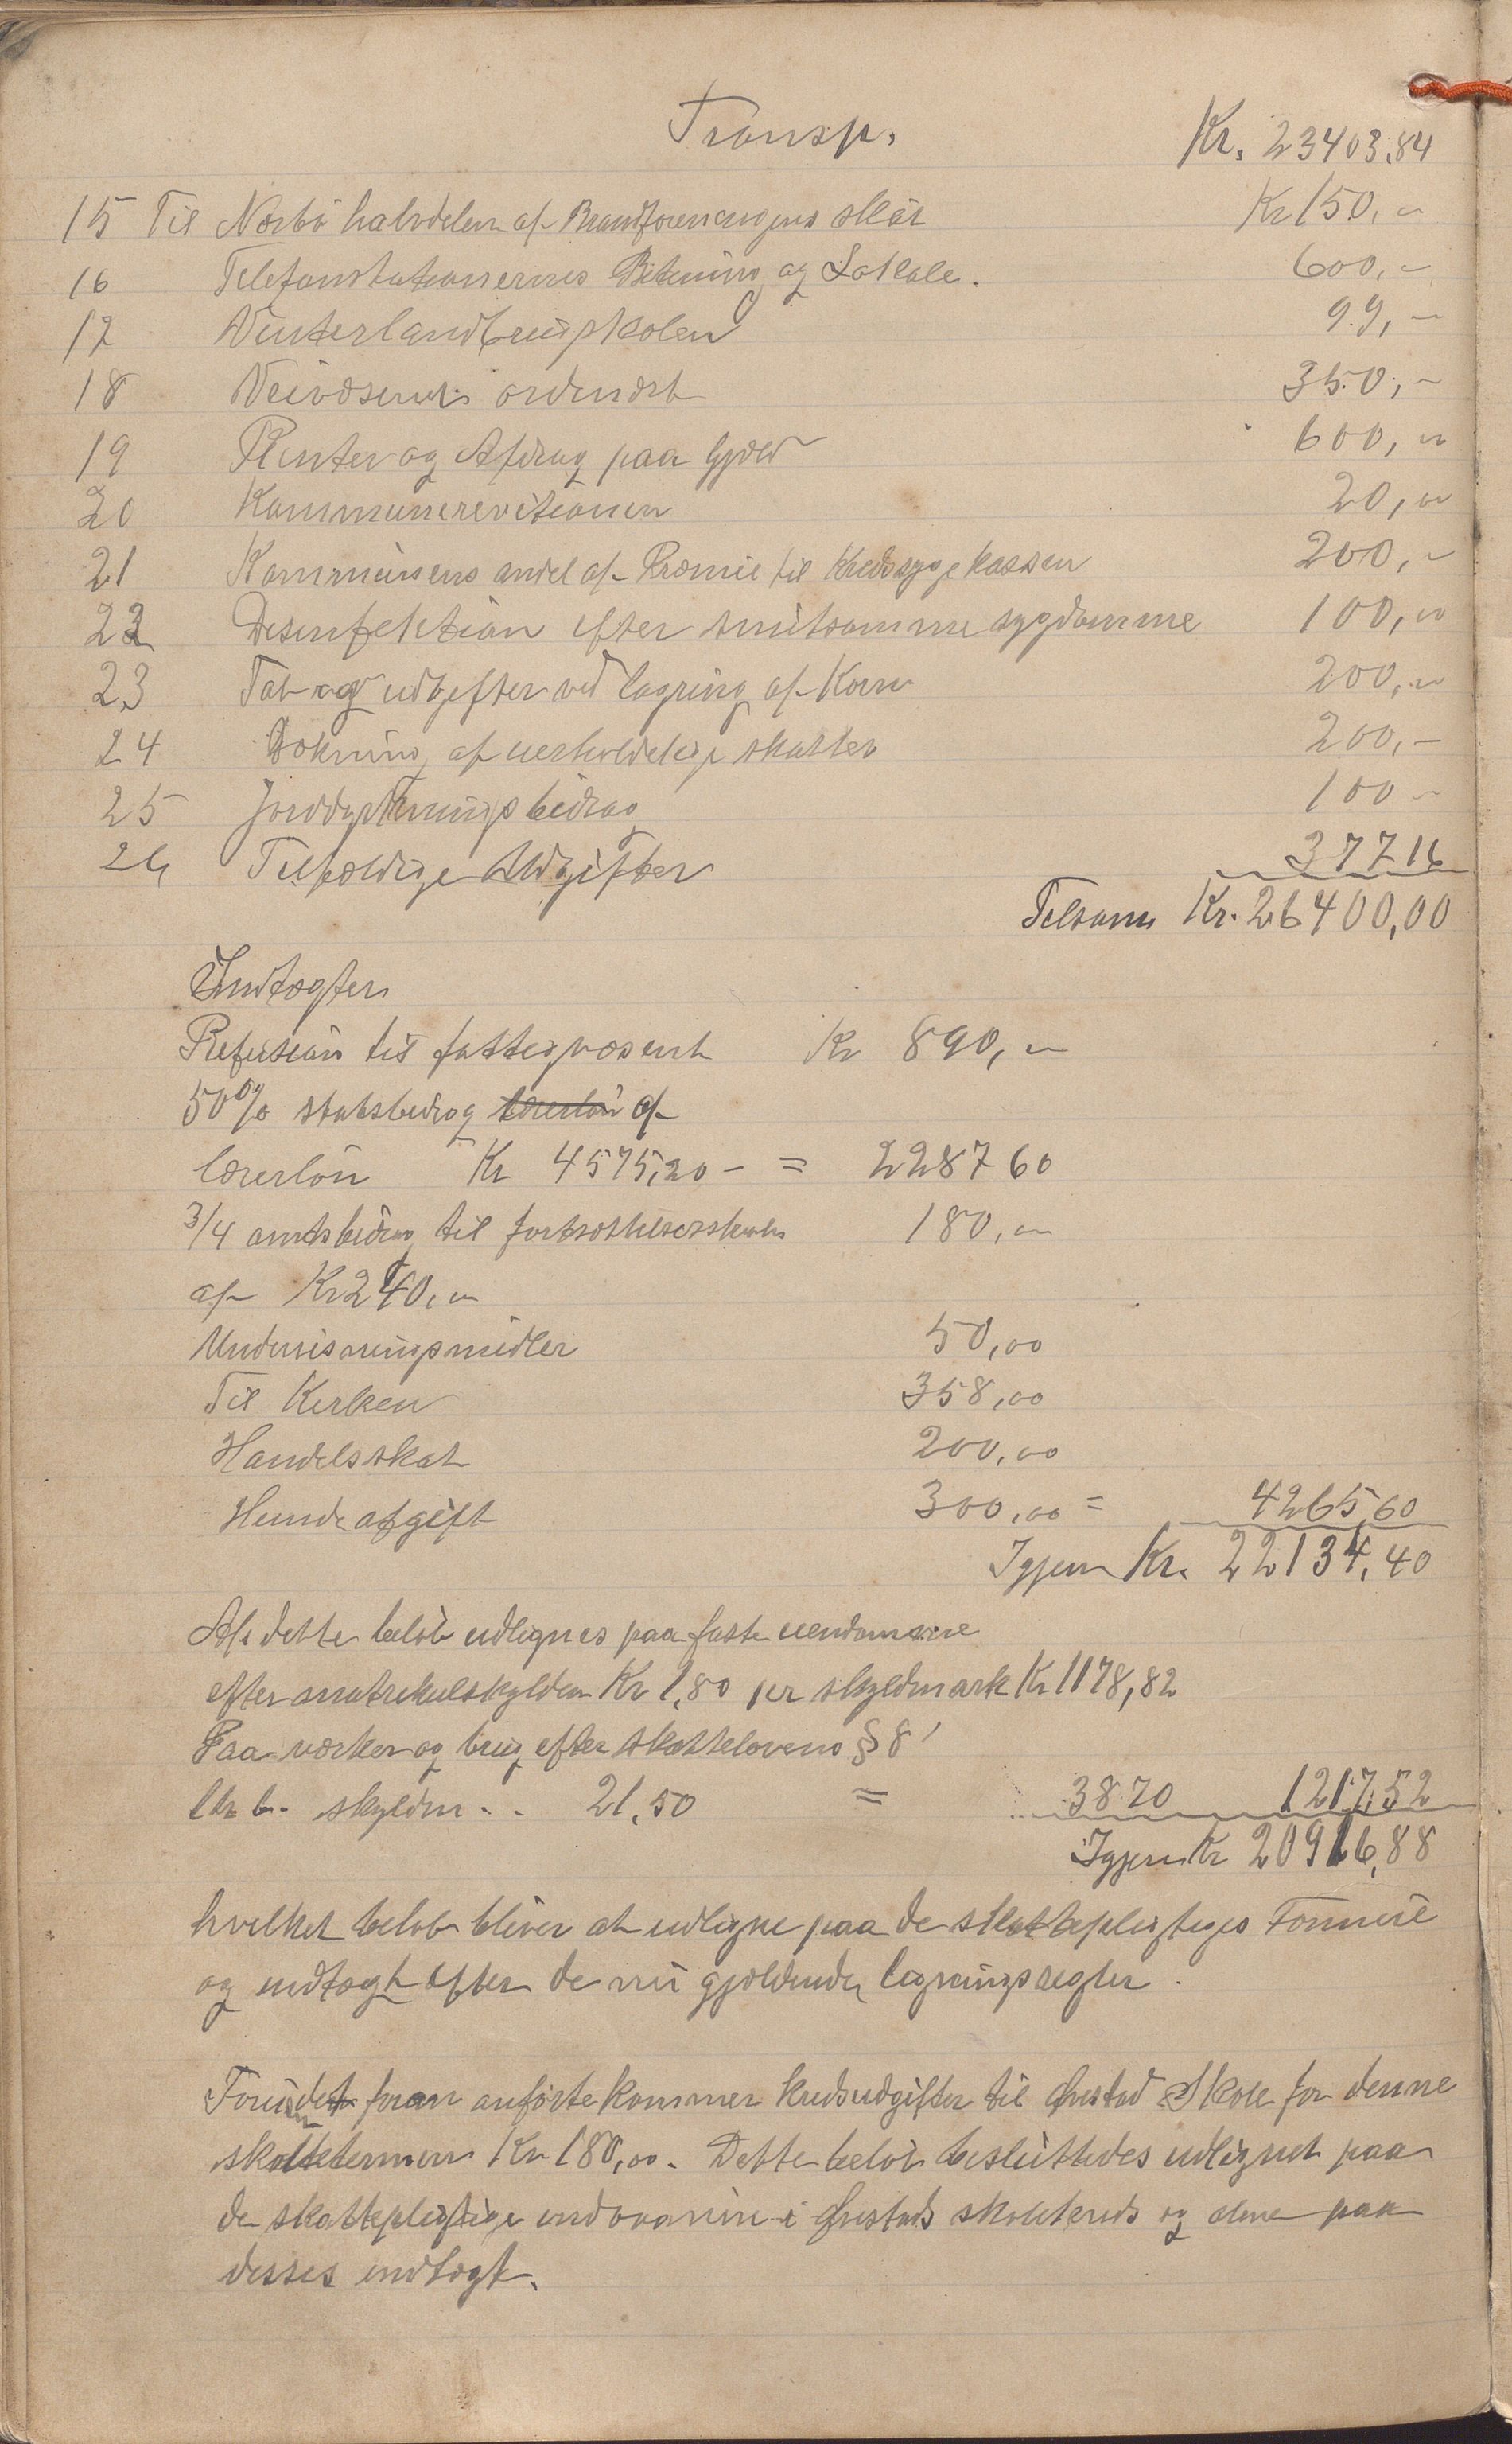 Transp. Kr. 23403,84
15 Til Nærbø halvdelen af Brandforeningens skat Kr 150,-
16 Telefonstationernes Betening og Lokale. 600,-
17 Vinterlandbrugskolen 99,-
18 Veivæsenet ordinært 350,-
19 Renter og Afdrag paa Gjæld 600,00
20 Kommunerevitionen 20,00
21 Kommunens andel af Præmie til Kredssygekassen 200,-
22 Desinfektion efter smitsomme sygdomme 100,00
23 Tab og udgifter ved lagring af Korn 200,-
24 Dækning af uerholdelige skatter 200,-
25 Jorddyrkningsbidrag 100-
26 Tilfældige Udgifter 377 16
Tilsam Kr. 26400,00
Indtægter
Refusion til fattigvæsent Kr 890,-
50% statsbidrag lærerløn af
lærerløn Kr 4575,20 - = 2287 60
3/4 amtsbidrag til fortsættelsesskole 180,00
af Kr 240,00
Undervisningsmidler 50,00
Til Kirken 358,00
Handelsskat 200,00
Hundeafgift 300,00 = 4265,60
Igjen Kr. 22134,40
Af dette beløb udlignes paa faste eiendomme
efter matrikulskylden Kr 1,80 per skyldmark Kr 1178,82
Paa værker og brug efter skatteloven § 8
litr b. skyldm.. 21,50 = 38 70 1217,52
Igjen Kr 20916,88
hvilket beløb bliver at udligne paa de skattepligtiges Formue
og indtægt efter de nu gjældende ligningsregler.
Foruden det foran anførte kommer kredsudgifter til Ørestad Skole for denne
skattetermin Kr 180,00. Dette beløb besluttedes udlignet paa
de skattepligtige indvaanere i Ørestads skolekreds og alene paa
disses indtægt.